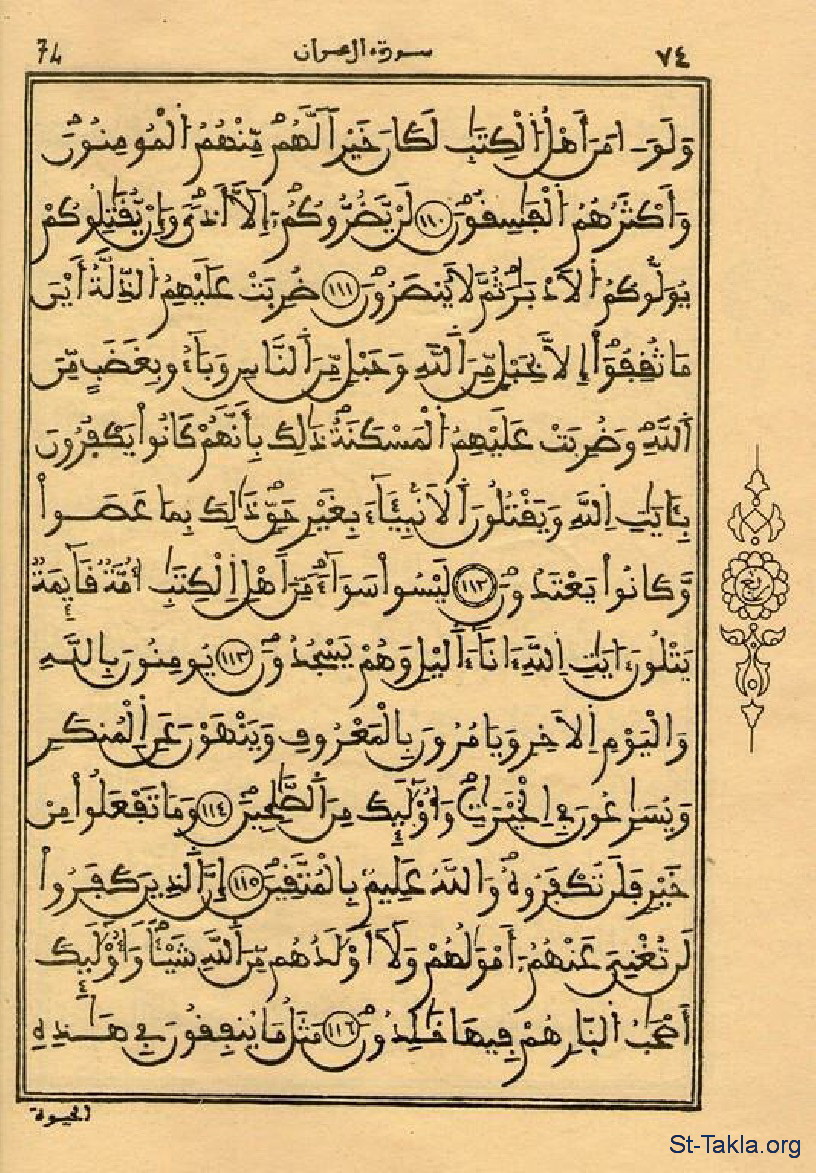 74 سورة ال عمران ٧٤
وَلَوَ امَنَ أَهْلُ اُلْكِتَٰبِ لَكَانَ خَيْراٗ لَّهُمْ مِّنْهُمُ اُلْمُومِنُونَ
وَأَكْثَرُهُمُ اُلْفَٰسِقُونَ ١١٠ لَنْ يَّضُرُّوكُمُ إِلَّا أَذىٗ وَإِنْ يُّقَٰتِلُوكُمْ
يُوَلُّوكُمُ اُلَادْبَٰرَ ثُمَّ لَا يُنصَرُونَ ١١١ ضُرِبَتْ عَلَيْهِمُ اُلذِّلَّةُ أَيْنَ
مَا ثُقِفُوٓاْ إِلَّا بِحَبْلٖ مِّنَ اَللَّهِ وَحَبْلٖ مِّنَ اَلنَّاسِ وَبَآءُو بِغَضَبٖ مِّنَ
اَللَّهِ وَضُرِبَتْ عَلَيْهِمُ اُلْمَسْكَنَةُ ذَٰلِكَ بِأَنَّهُمْ كَانُواْ يَكْفُرُونَ
بِـَٔايَٰتِ اِللَّهِ وَيَقْتُلُونَ اَلَانۢبِيَآءَ بِغَيْرِ حَقّٖ ذَٰلِكَ بِمَا عَصَواْ
وَّكَانُواْ يَعْتَدُونَ ١١٢ لَيْسُواْ سَوَآءٗ مِّنَ أَهْلِ اِلْكِتَٰبِ أُمَّةٞ قَآئِمَةٞ
يَتْلُونَ ءَايَٰتِ اِللَّهِ ءَانَآءَ اَليْلِ وَهُمْ يَسْجُدُونَ ١١٣ يُومِنُونَ بِاللَّهِ
وَالْيَوْمِ اِلَاخِرِ وَيَامُرُونَ بِالْمَعْرُوفِ وَيَنْهَوْنَ عَنِ اِلْمُنكَرِ
وَيُسَٰرِعُونَ فِي اِلْخَيْرَٰتِ وَأُوْلَٰٓئِكَ مِنَ اَلصَّٰلِحِينَ ١١٤ وَمَا تَفْعَلُواْ مِنْ
خَيْرٖ فَلَن تُكْفَرُوهُ وَاللَّهُ عَلِيمُۢ بِالْمُتَّقِينَ ١١٥ إِنَّ اَلذِينَ كَفَرُواْ
لَن تُغْنِيَ عَنْهُمُ أَمْوَٰلُهُمْ وَلَا أَوْلَٰدُهُم مِّنَ اَللَّهِ شَيْـٔاٗ وَأُوْلَٰٓئِكَ
أَصْحَٰبُ اُلنَّارِ هُمْ فِيهَا خَٰلِدُونَ ١١٦ مَثَلُ مَا يُنفِقُونَ فِي هَٰذِهِ
الحيوة
ربع
St-Takla.org